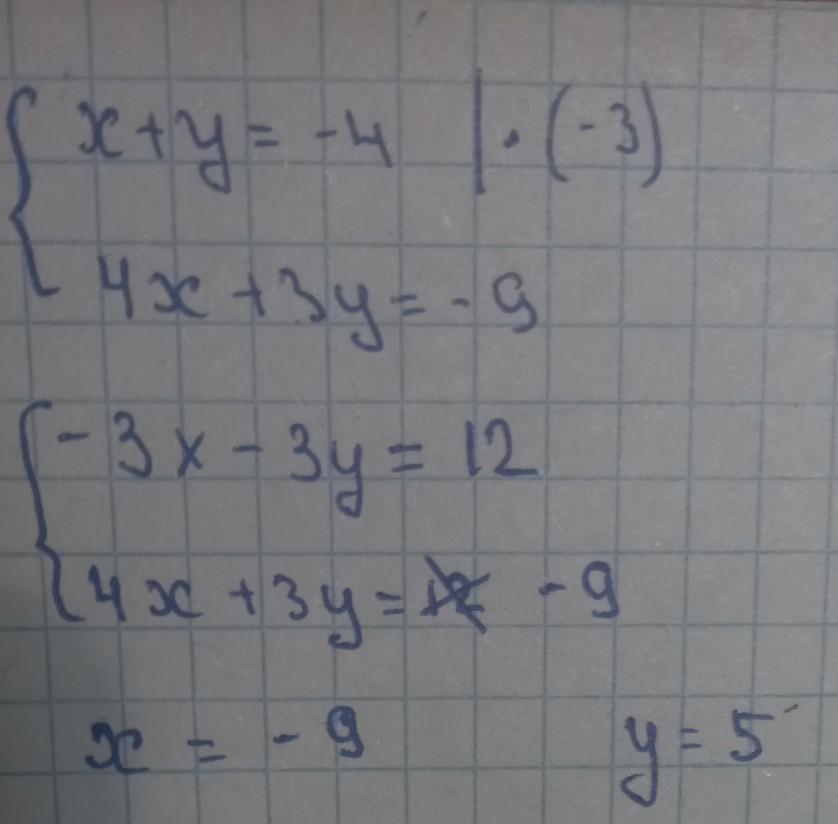 x+y = -4 | · (-3)
4x + 3y = - 9
- 3x - 3y = 12
4x + 3y = - 9
x = - 9 y = 5